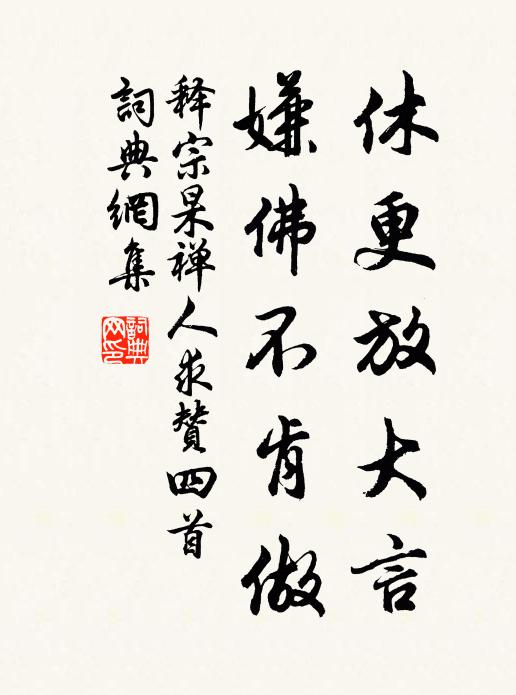 休更放大言
嫌佛不肯做
释宗杲禅人求赞四首
詞典網集
詞典网印